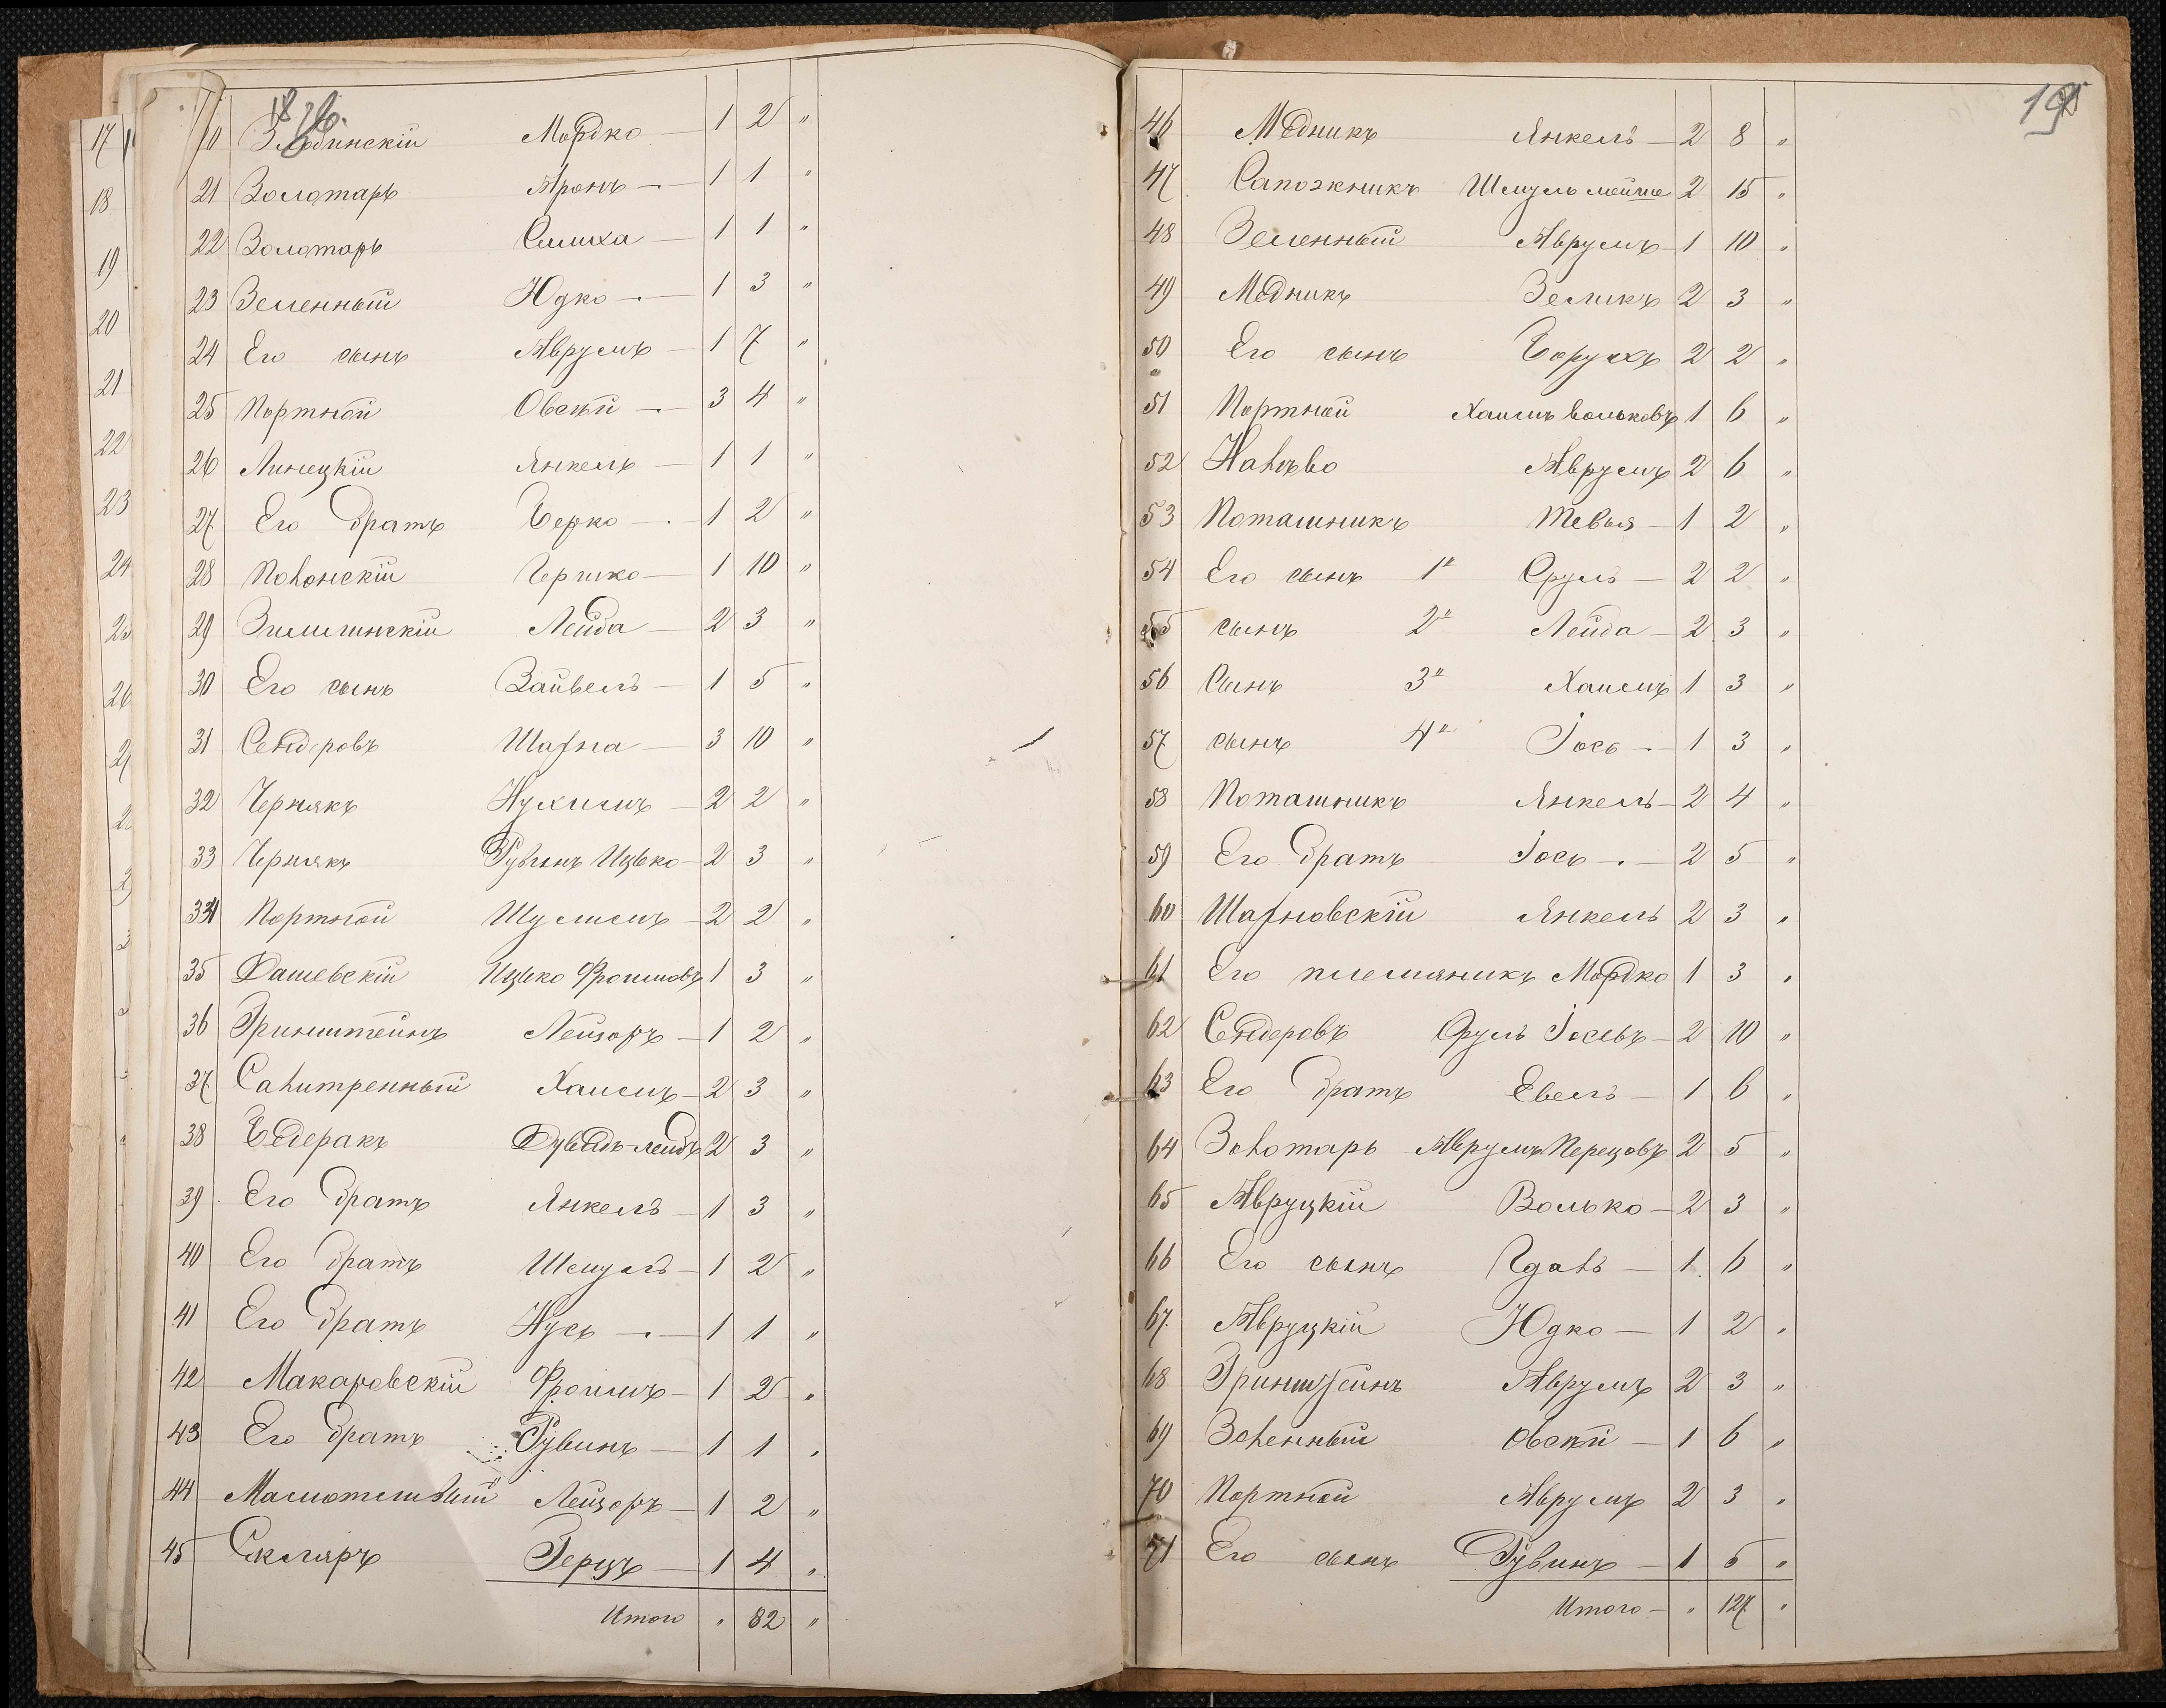 17
18
19
20
21
22
23
24
26
Мордко — 1 2 "
21 Золотарь Аронъ — 1 1 "
22 Золотарь Симха — 1 1 "
23 Зеленный Юдко — 1 3 "
24 Его сынъ Аврумъ — 1 7 "
25 Портной Овсѣй — 3 4 "
26 Линецкій Янкель — 1 1 "
27 Его братъ Берко — 1 2 "
28 Полонскій Гершко — 1 10 "
29 Лейба — 2 3 "
30 Его сынъ Зайвель — 1 5 "
31 Сендеровъ Шафта — 3 10 "
32 Чернякъ Нухимъ — 2 2 "
33 Чернякъ Рувинъ Ицько — 2 3 "
34 Портной Шулимъ — 2 2 "
35 Дашевскій Ицько Фроимовъ 1 3 "
36 Гринштейнъ Лейзоръ — 1 2 "
37 Салитренный Хаимъ — 2 3 "
38 Бедеракъ Дувидъ-Лейбъ 2 3 "
39 Его братъ Янкель — 1 3 "
40 Его братъ Шмуль — 1 2 "
41 Его братъ Нусъ — 1 1 "
42 Макаровскій Фроимъ — 1 2 "
43 Его братъ Рувинъ — 1 1 "
44 Лейзоръ — 1 2 "
45 Скляръ Герцъ — 1 4 "
Итого " 82 "
19
46 Мѣдникъ Янкель — 2 8 "
47 Сапожникъ Шмуль Мойше 2 15 "
48 Зеленный Аврумъ — 1 10 "
49 Мѣдникъ Зеликъ 2 3 "
50 Его сынъ Борухъ 2 2 "
51 Портной Хаимъ Вольковъ 1 6 "
52 Аврумъ 2 6 "
53 Поташникъ Тевья — 1 2 "
54 Его сынъ 1й Сруль — 2 2 "
55 сынъ 2й Лейба — 2 3 "
56 Сынъ 3й Хаимъ 1 3 "
57 сынъ 4й Іось — 1 3 "
58 Поташникъ Янкель — 2 4 "
59 Его братъ Іось — 2 5 "
60 Шарновскій Янкель 2 3 "
61 Его племяникъ Мордко 1 3 "
62 Сендеровъ Сруль Іосевъ — 2 10 "
63 Его братъ Евель — 1 6 "
64 Золотарь Аврумъ Перецовъ 2 5 "
65 Авруцкій Волько — 2 3 "
66 Его сынъ Гдаль — 1 6 "
67 Авруцкій Юдко — 1 2 "
68 Гринштейнъ Аврумъ 2 3 "
69 Зеленный Овсѣй — 1 6 "
70 Портной Аврумъ 2 3 "
71 Его сынъ Рувинъ — 1 5 "
Итого — " 127 "